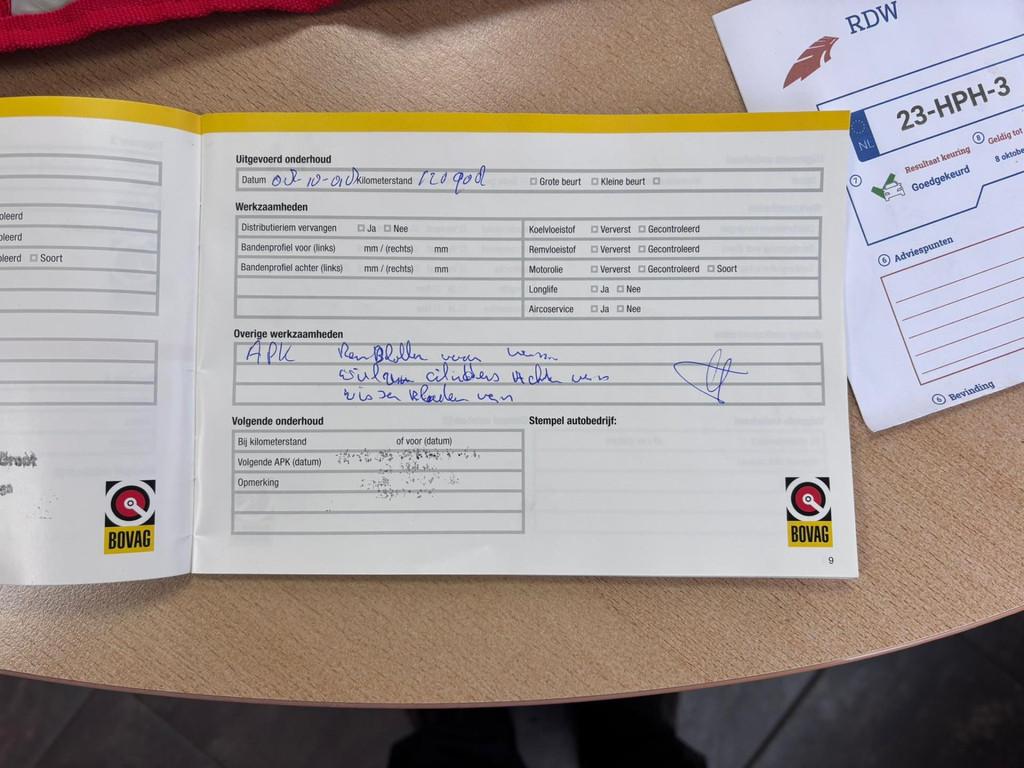 RDW
23-HPH-3
NL
7
Resultaat keuring
Goedgekeurd
8 Geldig tot
8 oktobe
6 Adviespunten
Bevinding
oleerd
oleerd
oleerd Soort
BOVAG
Uitgevoerd onderhoud
Datum Kilometerstand Grote beurt Kleine beurt
Werkzaamheden
Distributieriem vervangen Ja Nee
Bandenprofiel voor (links) mm / (rechts) mm
Bandenprofiel achter (links) mm / (rechts) mm
Koelvloeistof Ververst Gecontroleerd
Remvloeistof Ververst Gecontroleerd
Motorolie Ververst Gecontroleerd Soort
Longlife Ja Nee
Aircoservice Ja Nee
Overige werkzaamheden
APK Remblokken voor
cilinders achter
Volgende onderhoud
Bij kilometerstand of voor (datum)
Volgende APK (datum)
Opmerking
Stempel autobedrijf:
BOVAG
9